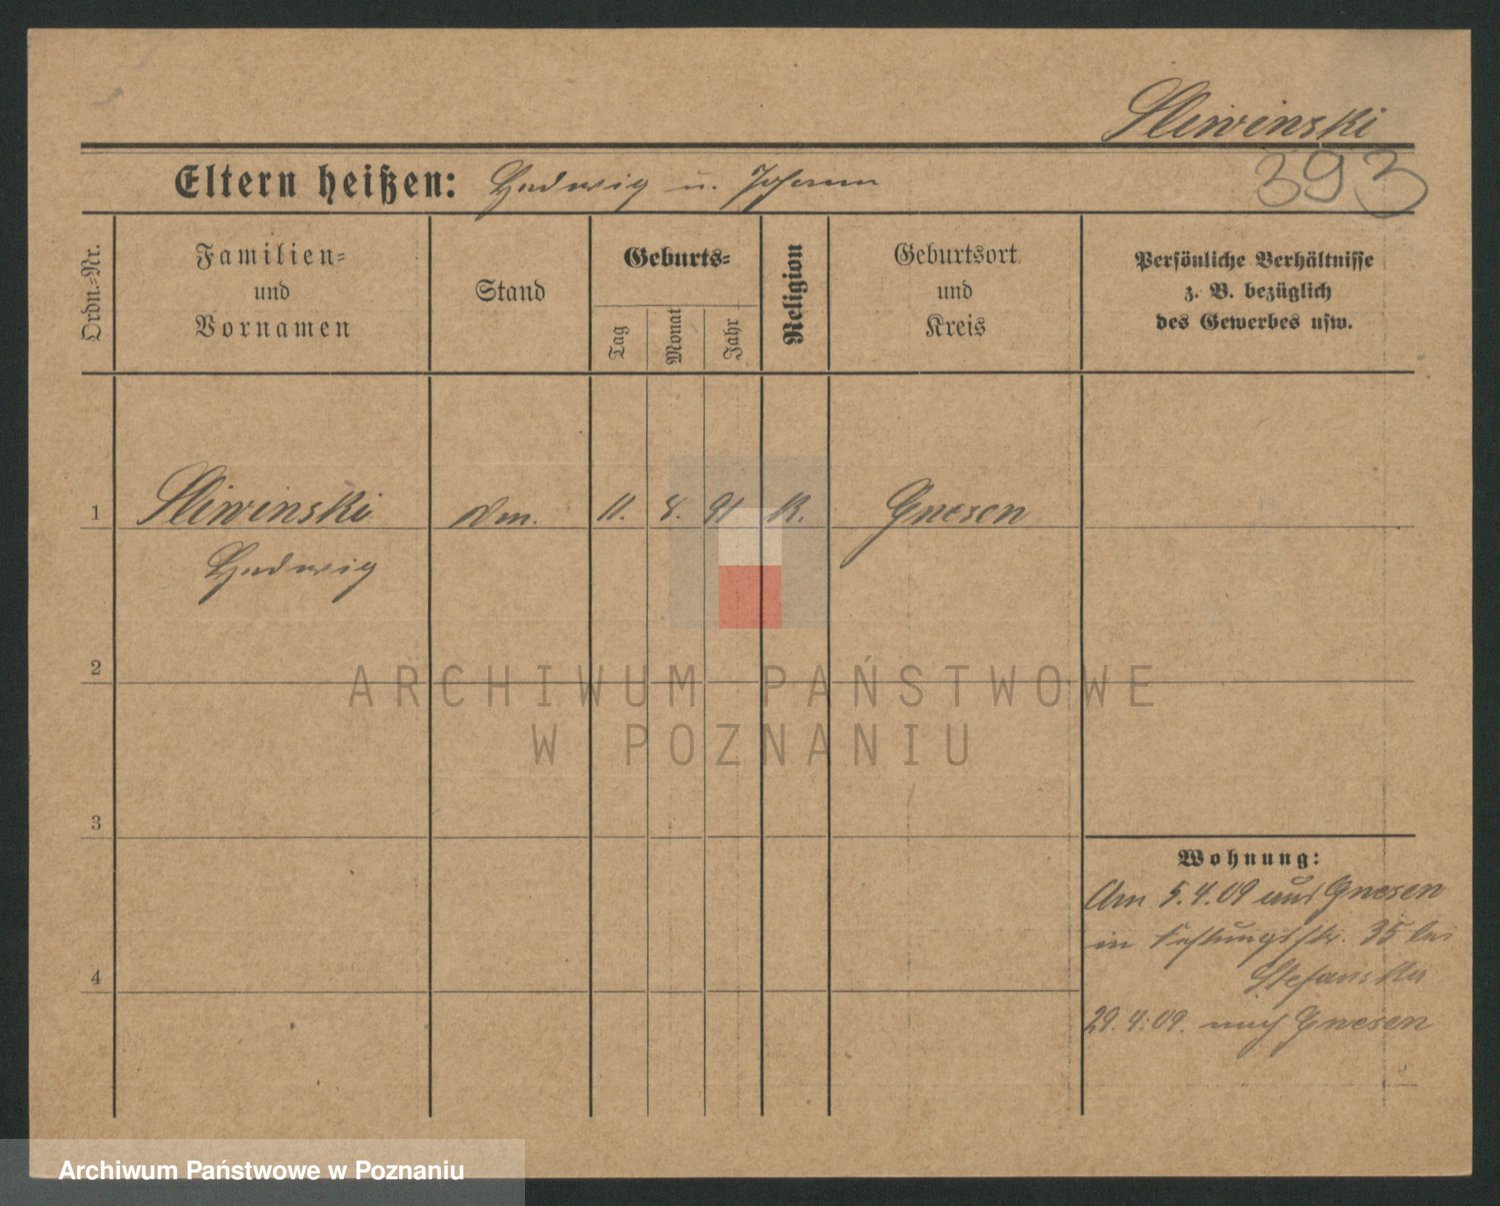 Sliwinski
393
Eltern heißen: Hedwig u. Johann
Ordn.=Nr.
Familien=
und
Vornamen
Stand
Geburts=
Tag
Monat
Jahr
Religion
Geburtsort
und
Kreis
Persönliche Verhältnisse
z. B. bezüglich
des Gewerbes usw.
1 Sliwinski 11. 8. 91 K. Gnesen
2
ARCHIWUM PAŃSTWOWE
W POZNANIU
3
Wohnung:
Am 5.4.09 aus Gnesen
in Festungsstr. 35 bei
4
29.4.09. nach Gnesen
Archiwum Państwowe w Poznaniu